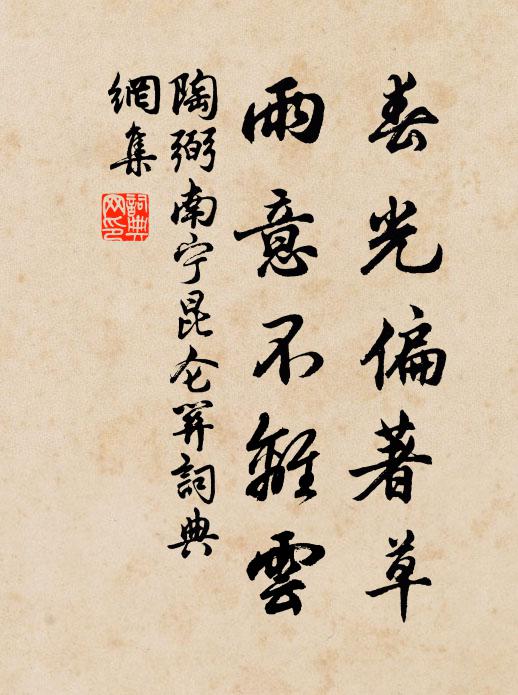 春光偏著草
雨意不離雲
陶弼南宁昆仑关詞典
網集
詞典
网印